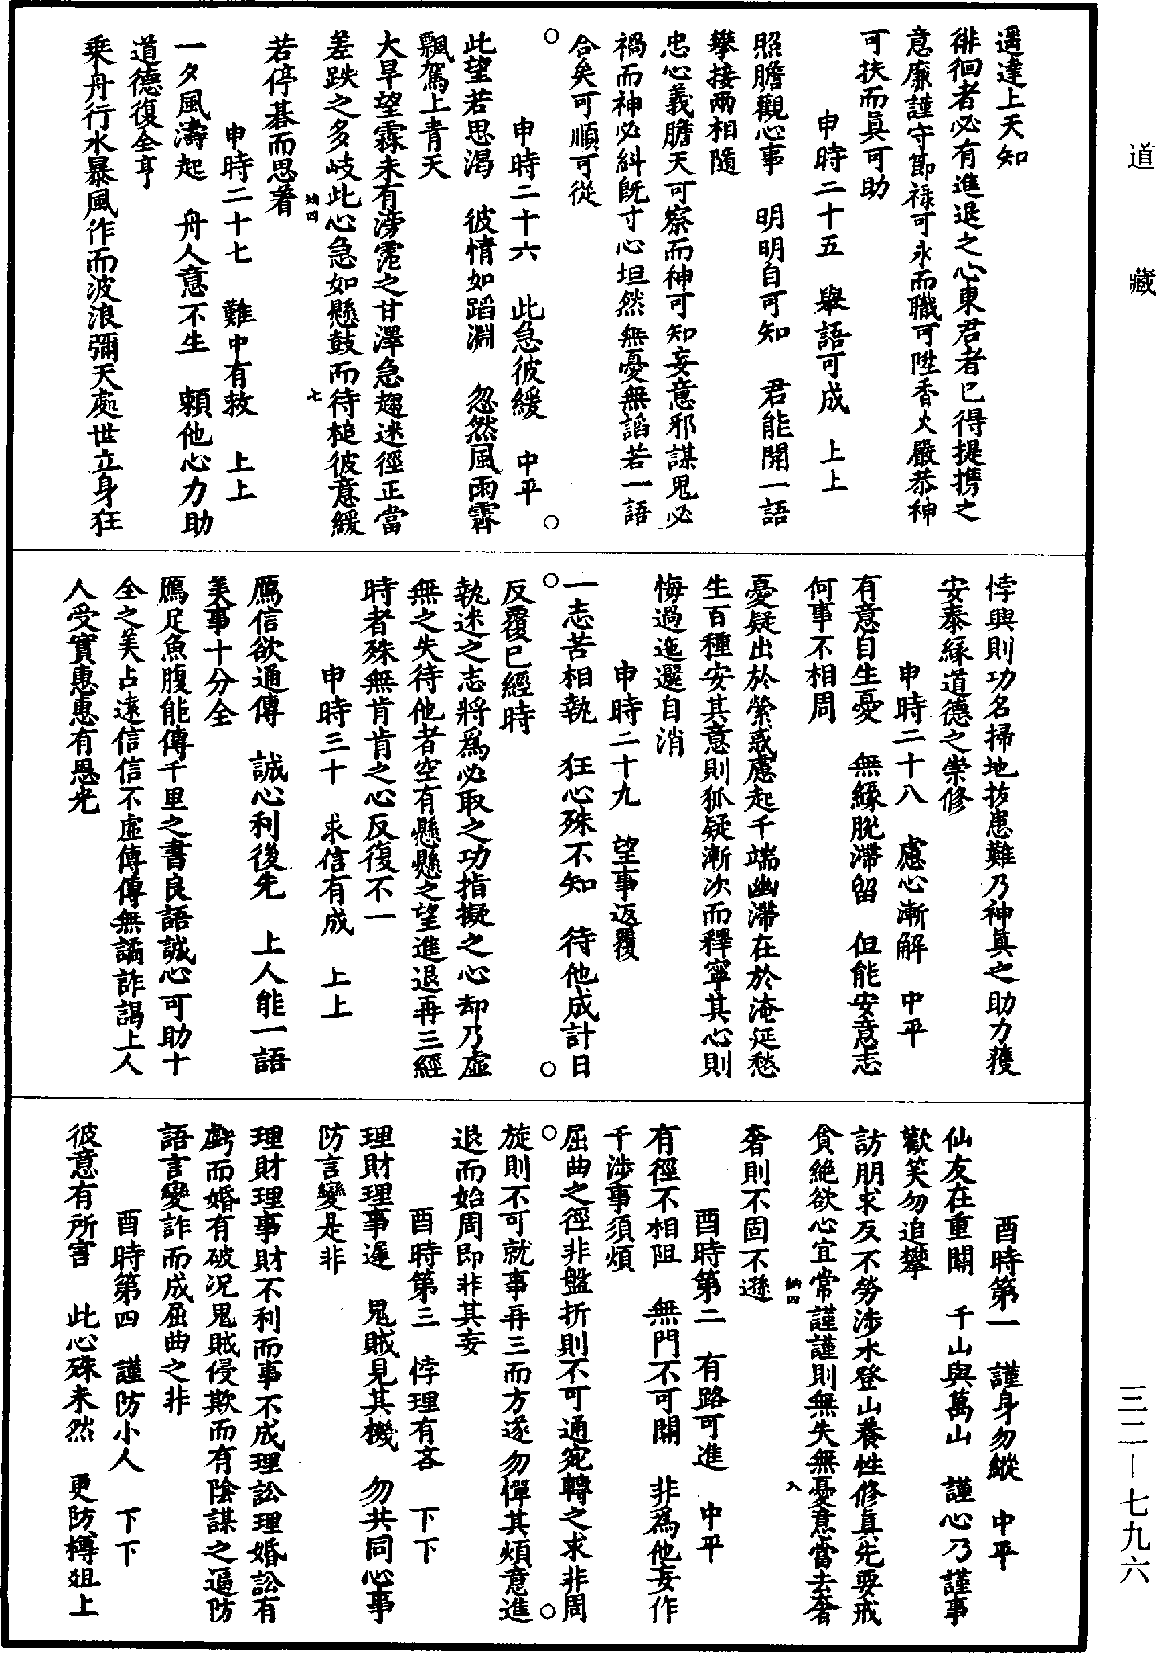 道藏
遇達上天知
徘徊者必有進退之心東君者已得提攜之
意廉謹守節祿可永而職可陞香火嚴恭神
可扶而真可助
申時二十五　舉語可成　上上
照膽觀心事　明明自可知　君能開一語
攀接兩相隨
忠心義膽天可察而神可知妄意邪謀鬼必
禍而神必糾既寸心坦然無憂無謟若一語
合矣可順可從
申時二十六　此急彼緩　中平
此望若思渴　彼情如蹈淵　忽然風雨霽
飄駕上青天
大旱望霖未有滂霑之甘澤急趨迷徑正當
差跌之多岐此心急如懸鼓而待槌彼意緩
若停碁而思著
七
申時二十七　難中有救　上上
一夕風濤起　舟人意不生　賴他心力助
道德復全亨
乘舟行水暴風作而波浪彌天處世立身狂
悖興則功名掃地拔患難乃神真之助力獲
安泰繇道德之崇修
申時二十八　慮心漸解　中平
有意自生憂　無緣脫滯留　但能安意志
何事不相周
憂疑出於縈惑慮起千端幽滯在於淹延愁
生百種安其意則狐疑漸次而釋寧其心則
悔過迤邐自消
申時二十九　望事返覆
一志苦相執　狂心殊不知　待他成計日
反覆已經時
執迷之志將為必取之功指擬之心却乃虛
無之失待他者空有懸懸之望進退再三經
時者殊無肯肯之心反復不一
申時三十　求信有成　上上
鴈信欲通傳　誠心利後先　上人能一語
美事十分全
鴈足魚腹能傳千里之書良語誠心可助十
全之美占遠信信不虛傳傳無譎詐謁上人
人受實惠惠有恩光
酉時第一　謹身勿縱　中平
仙友在重關　千山與萬山　謹心乃謹事
歡笑勿追攀
訪朋求友不勞涉水登山養性修真先要戒
貪絕欲心宜常謹謹則無失無憂意當去奢
奢則不固不遜
八
酉時第二　有路可進　中平
有徑不相阻　無門不可關　非為他妄作
干涉事須煩
屈曲之徑非盤折則不可通宛轉之求非周
旋則不可就事再三而方遂勿憚其煩意進
退而始周即非其妄
酉時第三　悖理有吝　下下
理財理事遲　鬼賊見其機　勿共同心事
防言變是非
理財理事財不利而事不成理訟理婚訟有
虧而婚有破況鬼賊侵欺而有陰謀之逼防
語言變詐而成屈曲之非
酉時第四　謹防小人　下下
彼意有所害　此心殊未然　更防樽俎上
三二—七九六